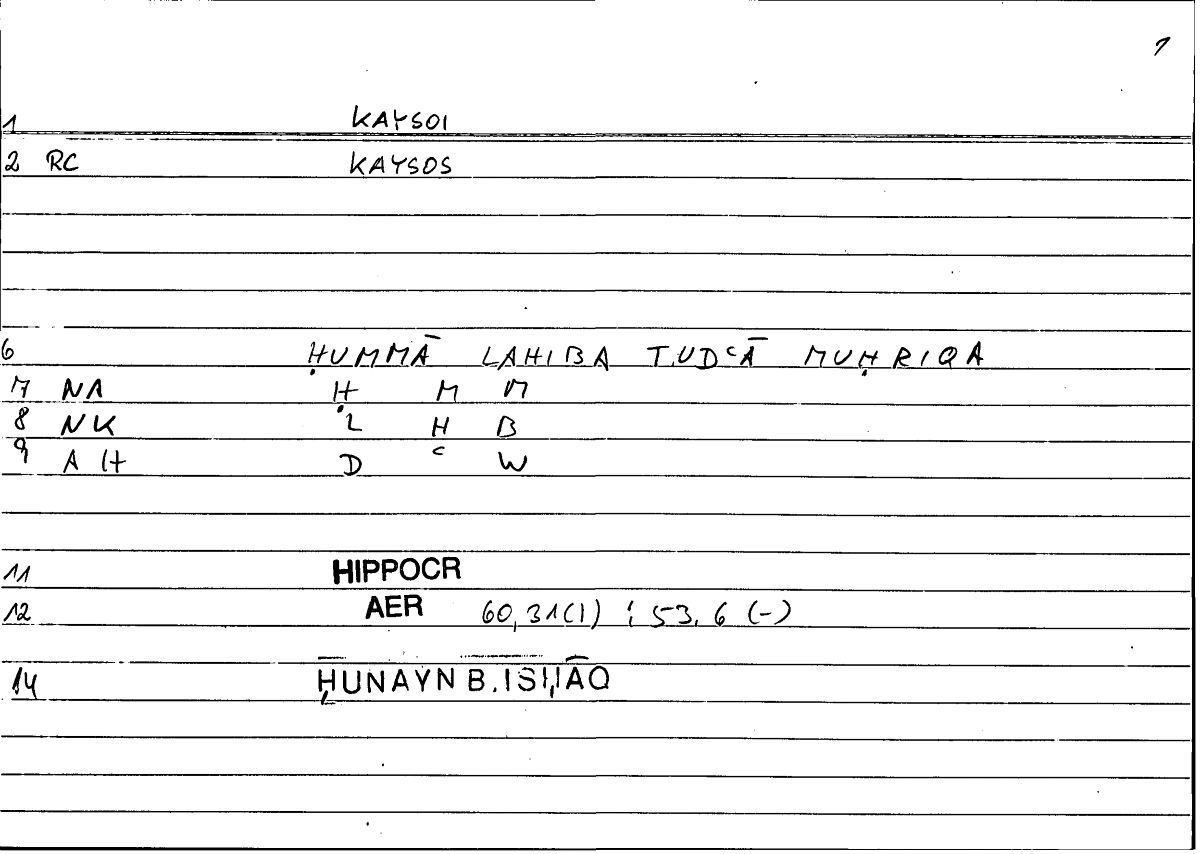 1
1 KAYSOI
2 RC KAYSOS
6 ḤUMMĀ LAHIBA TUDʿĀ MUḤRIQA
7 NA Ḥ M M
8 NK L H B
9 AH D ʿ W
11 HIPPOCR
12 AER 60,31(1) ; 53,6 (-)
14 ḤUNAYN B. ISḤĀQ